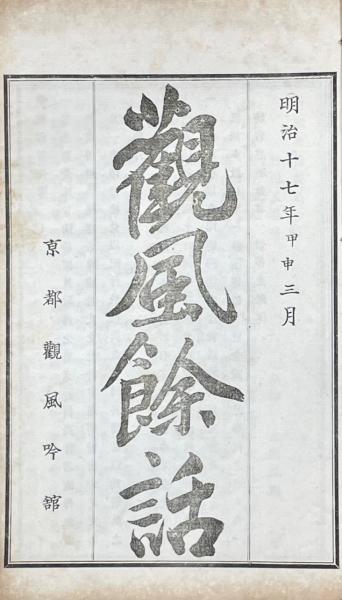 明治十七年甲申三月
觀風餘話
京都觀風吟舘